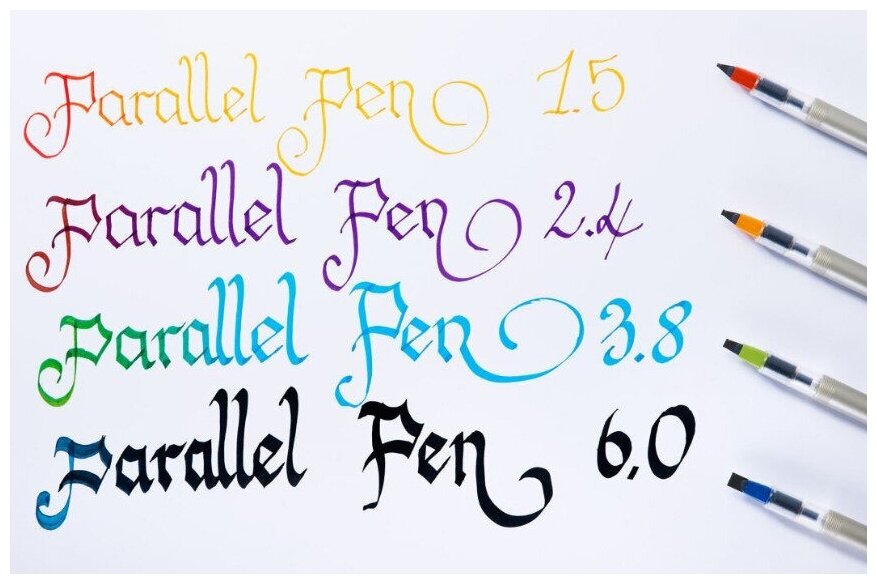 Parallel Pen 1.5
Parallel Pen 2.4
Parallel Pen 3.8
Parallel Pen 6.0